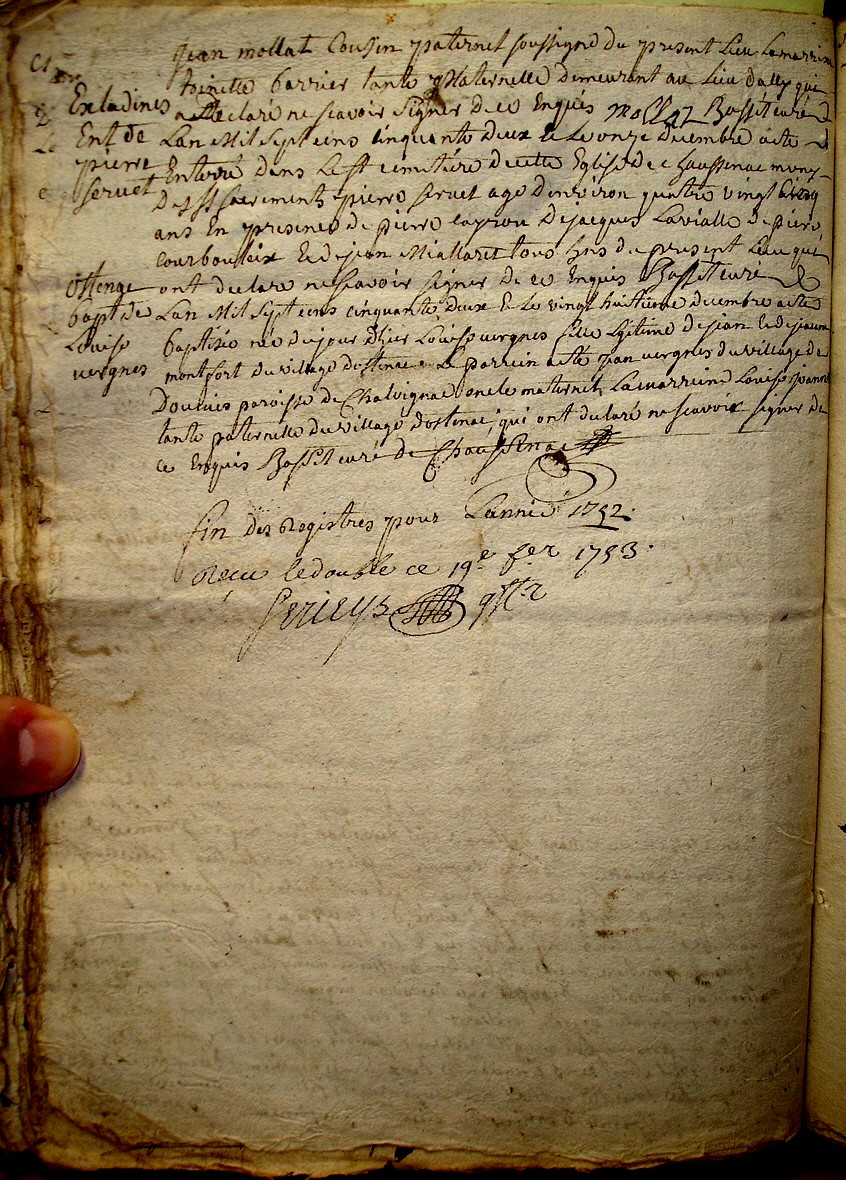 jean mollat Cousin paternel soussigné du present Lieu Lamarrine
toinette barrier tante Maternelle demeurant au Lieu dally qui
a declaré ne scavoir signer de ce Enquis mollat Bassit curé
Exladines
Ent de
pierre
servet
Lan Mil sept cens cinquante deux et Le onze decembre a este
Enterré dans Le cimetiere de cette Eglise de chaussenac muny
des sts sacrements pierre servet agé denviron quatre vingt cinq
ans En presence de pierre Layrou de jacques Lavialle de pierre
courbouleix Et de jean Miallaret tous hns du present Lieu qui
ont declaré ne scavoir signer de ce Enquis Bassit curé
ostenac
bapt de
Louise
vergnes
Lan Mil sept cens cinquante deux Et Le vingt huitieme decembre a este
baptisée née du jour dhier Louise vergnes fille Legitime de jean Et de jeanne
montfort du village dostenac Le parrein a esté jean vergnes du village de
paroisse de Chalvignac oncle maternel, Lamarreine Louise jeanne
tante paternelle du village dostenac qui ont declaré ne scavoir signer de
ce Enquis Bassit curé de Chaussenac
fin des Registres pour Lannée 1752.
Receu le double ce 19e fer 1753.
Perieys gffr